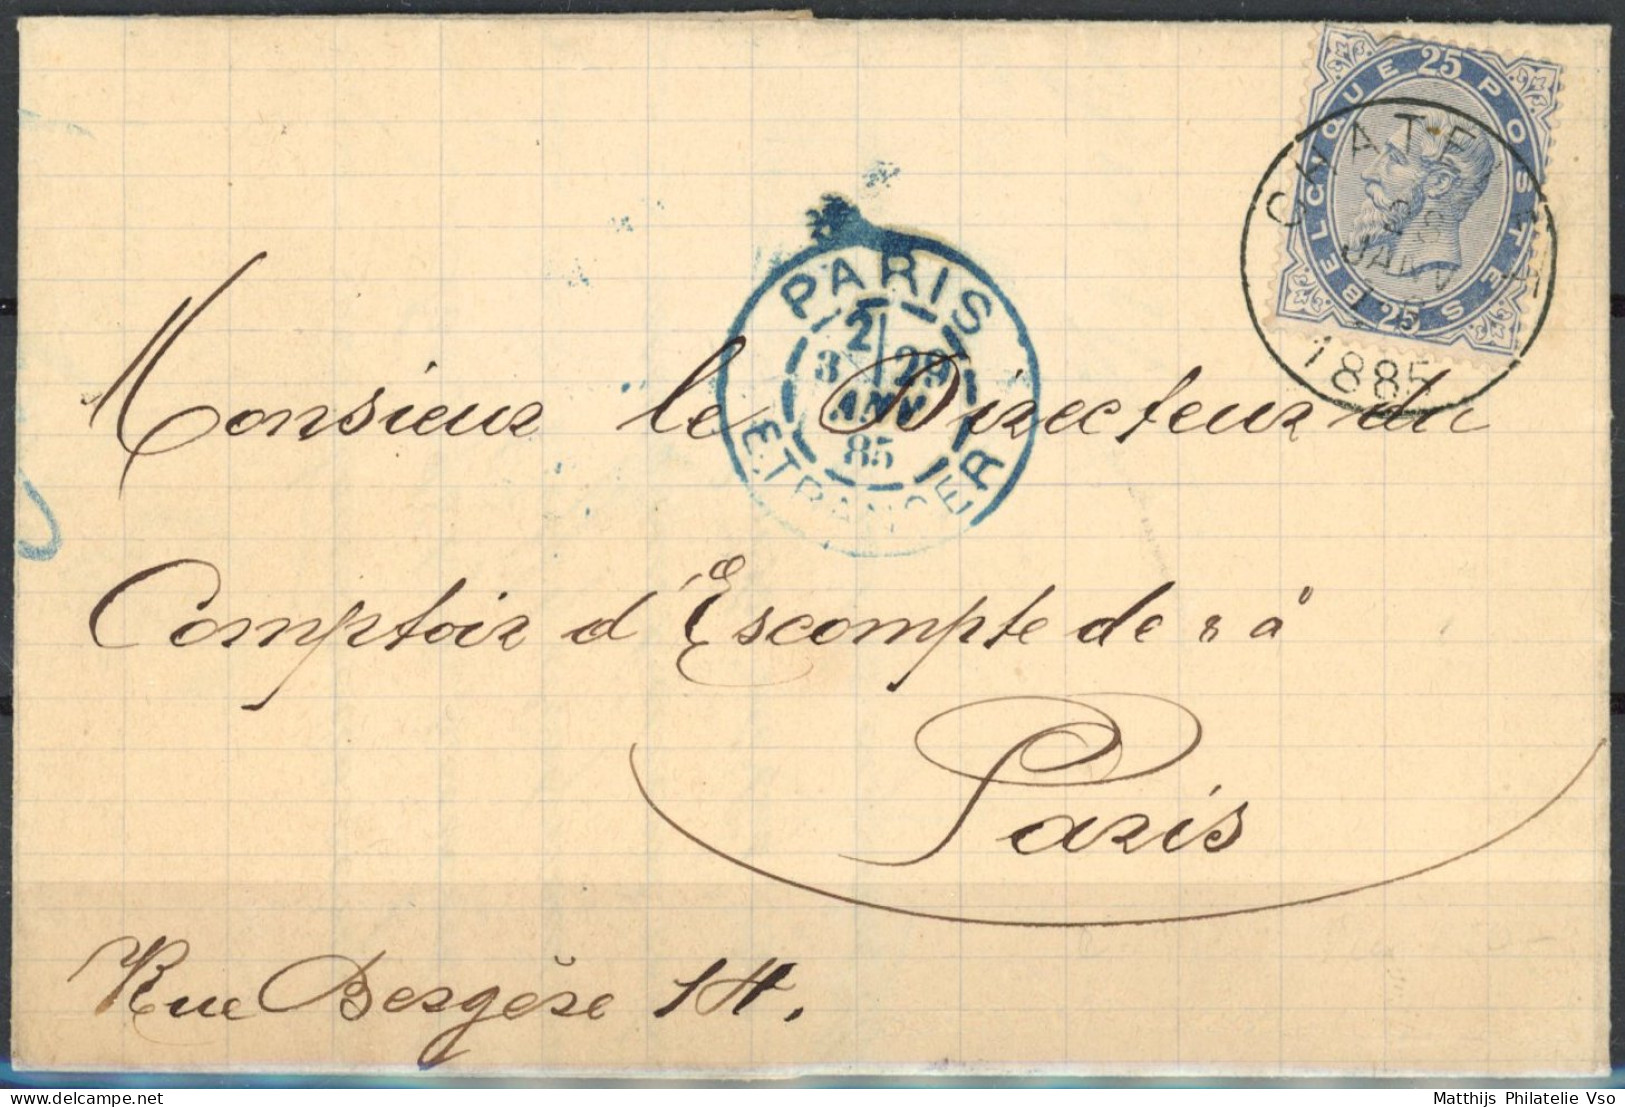 BELGIQUE 25 POSTES 25
CHATELET
28
JANV
1885
PARIS
2
3E 29
JANV
85
ETRANGER
Monsieur le Directeur du
Comptoir d'Escompte de à
Paris
Rue Bergère 14.
Matthijs Philatelie Vso